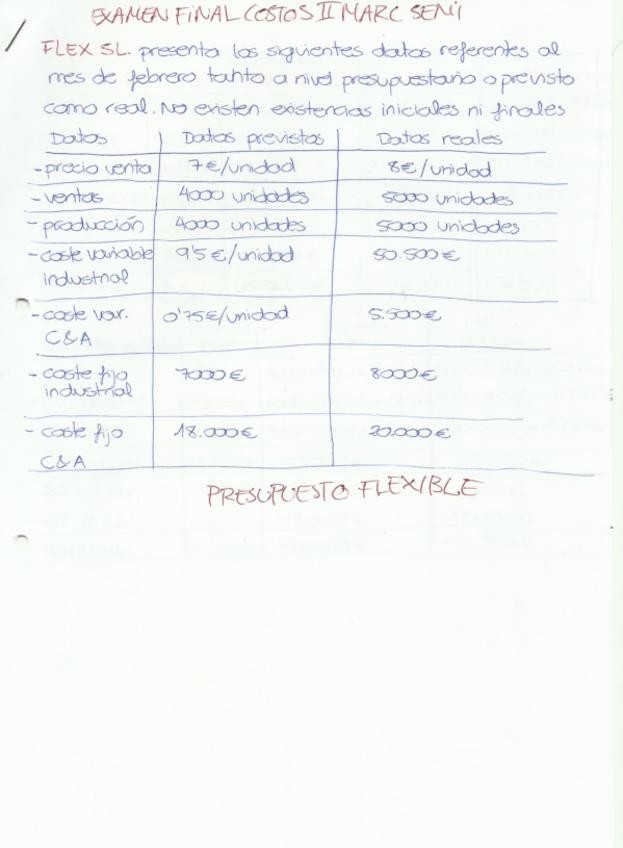 EXAMEN FINAL COSTOS II MARC SENÍ
FLEX SL. presenta los siguientes datos referentes al
mes de febrero tanto a nivel presupuestario o previsto
como real. No existen existencias iniciales ni finales
Datos Datos previstos Datos reales
- precio venta 7€/unidad 8€/unidad
- ventas 4000 unidades 5000 unidades
- producción 4000 unidades 5000 unidades
- coste variable 9'5 €/unidad 50.500 €
industrial
- coste var. 0'75€/unidad 5.500€
C&A
- coste fijo 7000€ 8000€
industrial
- coste fijo 18.000€ 20.000€
C&A
PRESUPUESTO FLEXIBLE